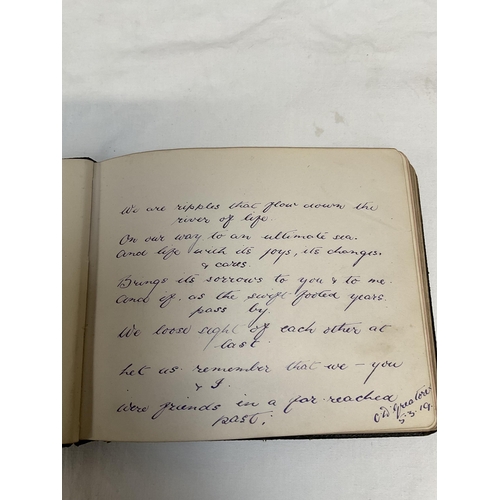 We are ripples that flow down the
river of life.
On our way to an ultimate sea.
And life with its joys, its changes.
& cares.
Brings its sorrows to you & to me.
And of. as the swift footed years.
pass by.
We loose sight of each other at
last.
Let us remember that we – you
& I.
Were friends in a far reached
past;
5.3.19.